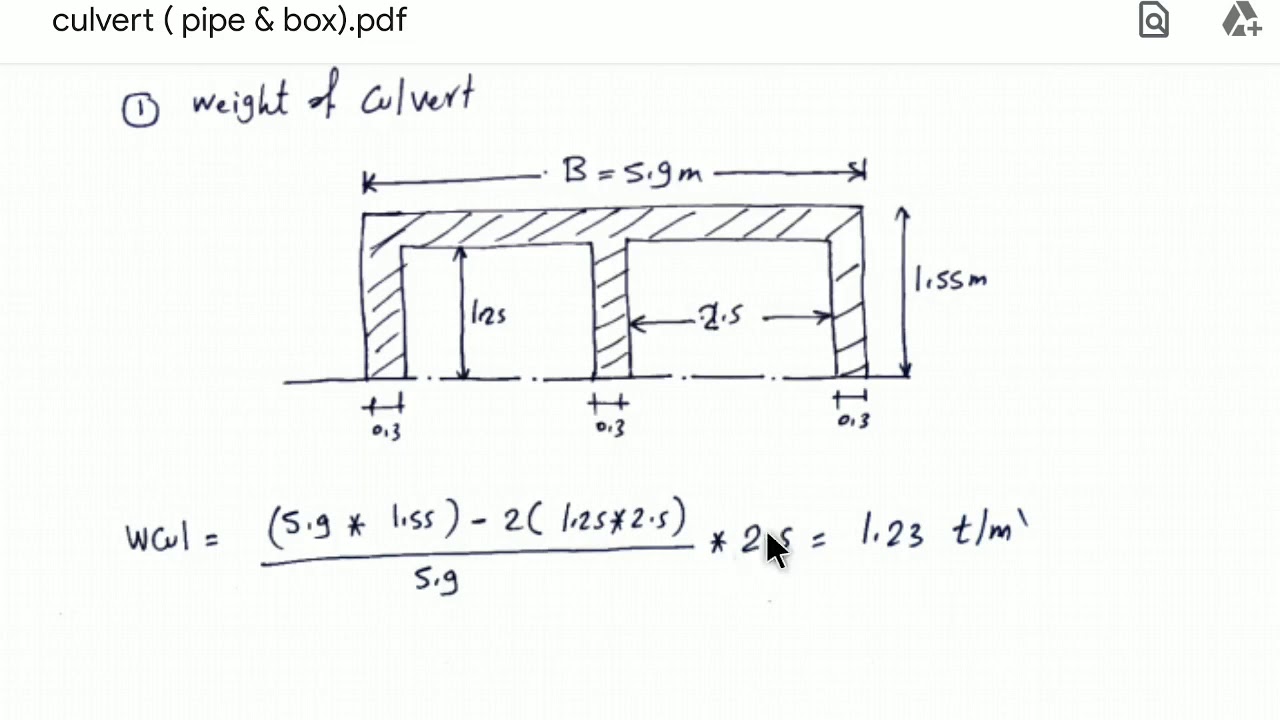 culvert ( pipe & box).pdf
① weight of Culvert
B = 5.9m
1.55m
1.25
2.5
0.3
0.3
0.3
Wcul = (5.9 * 1.55) - 2( 1.25*2.5) / 5.9 * 2.5 = 1.23 t/m`